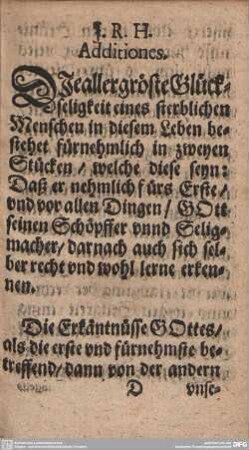 J. R. H.
Additiones.
DJe allergröste Glück-
seligkeit eines sterblichen
Menschen in diesem Leben be-
stehet fürnehmlich in zweyen
Stücken / welche diese seyn:
Daß er nehmlich fürs Erste /
vnd vor allen Dingen / GOtt
seinen Schöpffer vnnd Selig-
macher / darnach auch sich sel-
ber recht vnd wohl lerne erken-
nen.
Die Erkäntnüsse GOttes /
als die erste vnd fürnehmste be-
treffend / dann von der andern
D vnse-